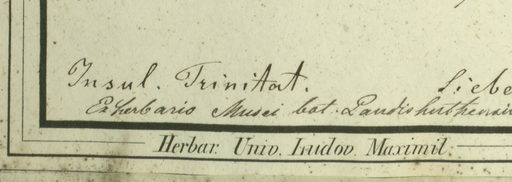 Insul. Trinitat. Siebe
Ex herbario Musei bot. Landishuthensis
Herbar. Univ. Ludov. Maximil.